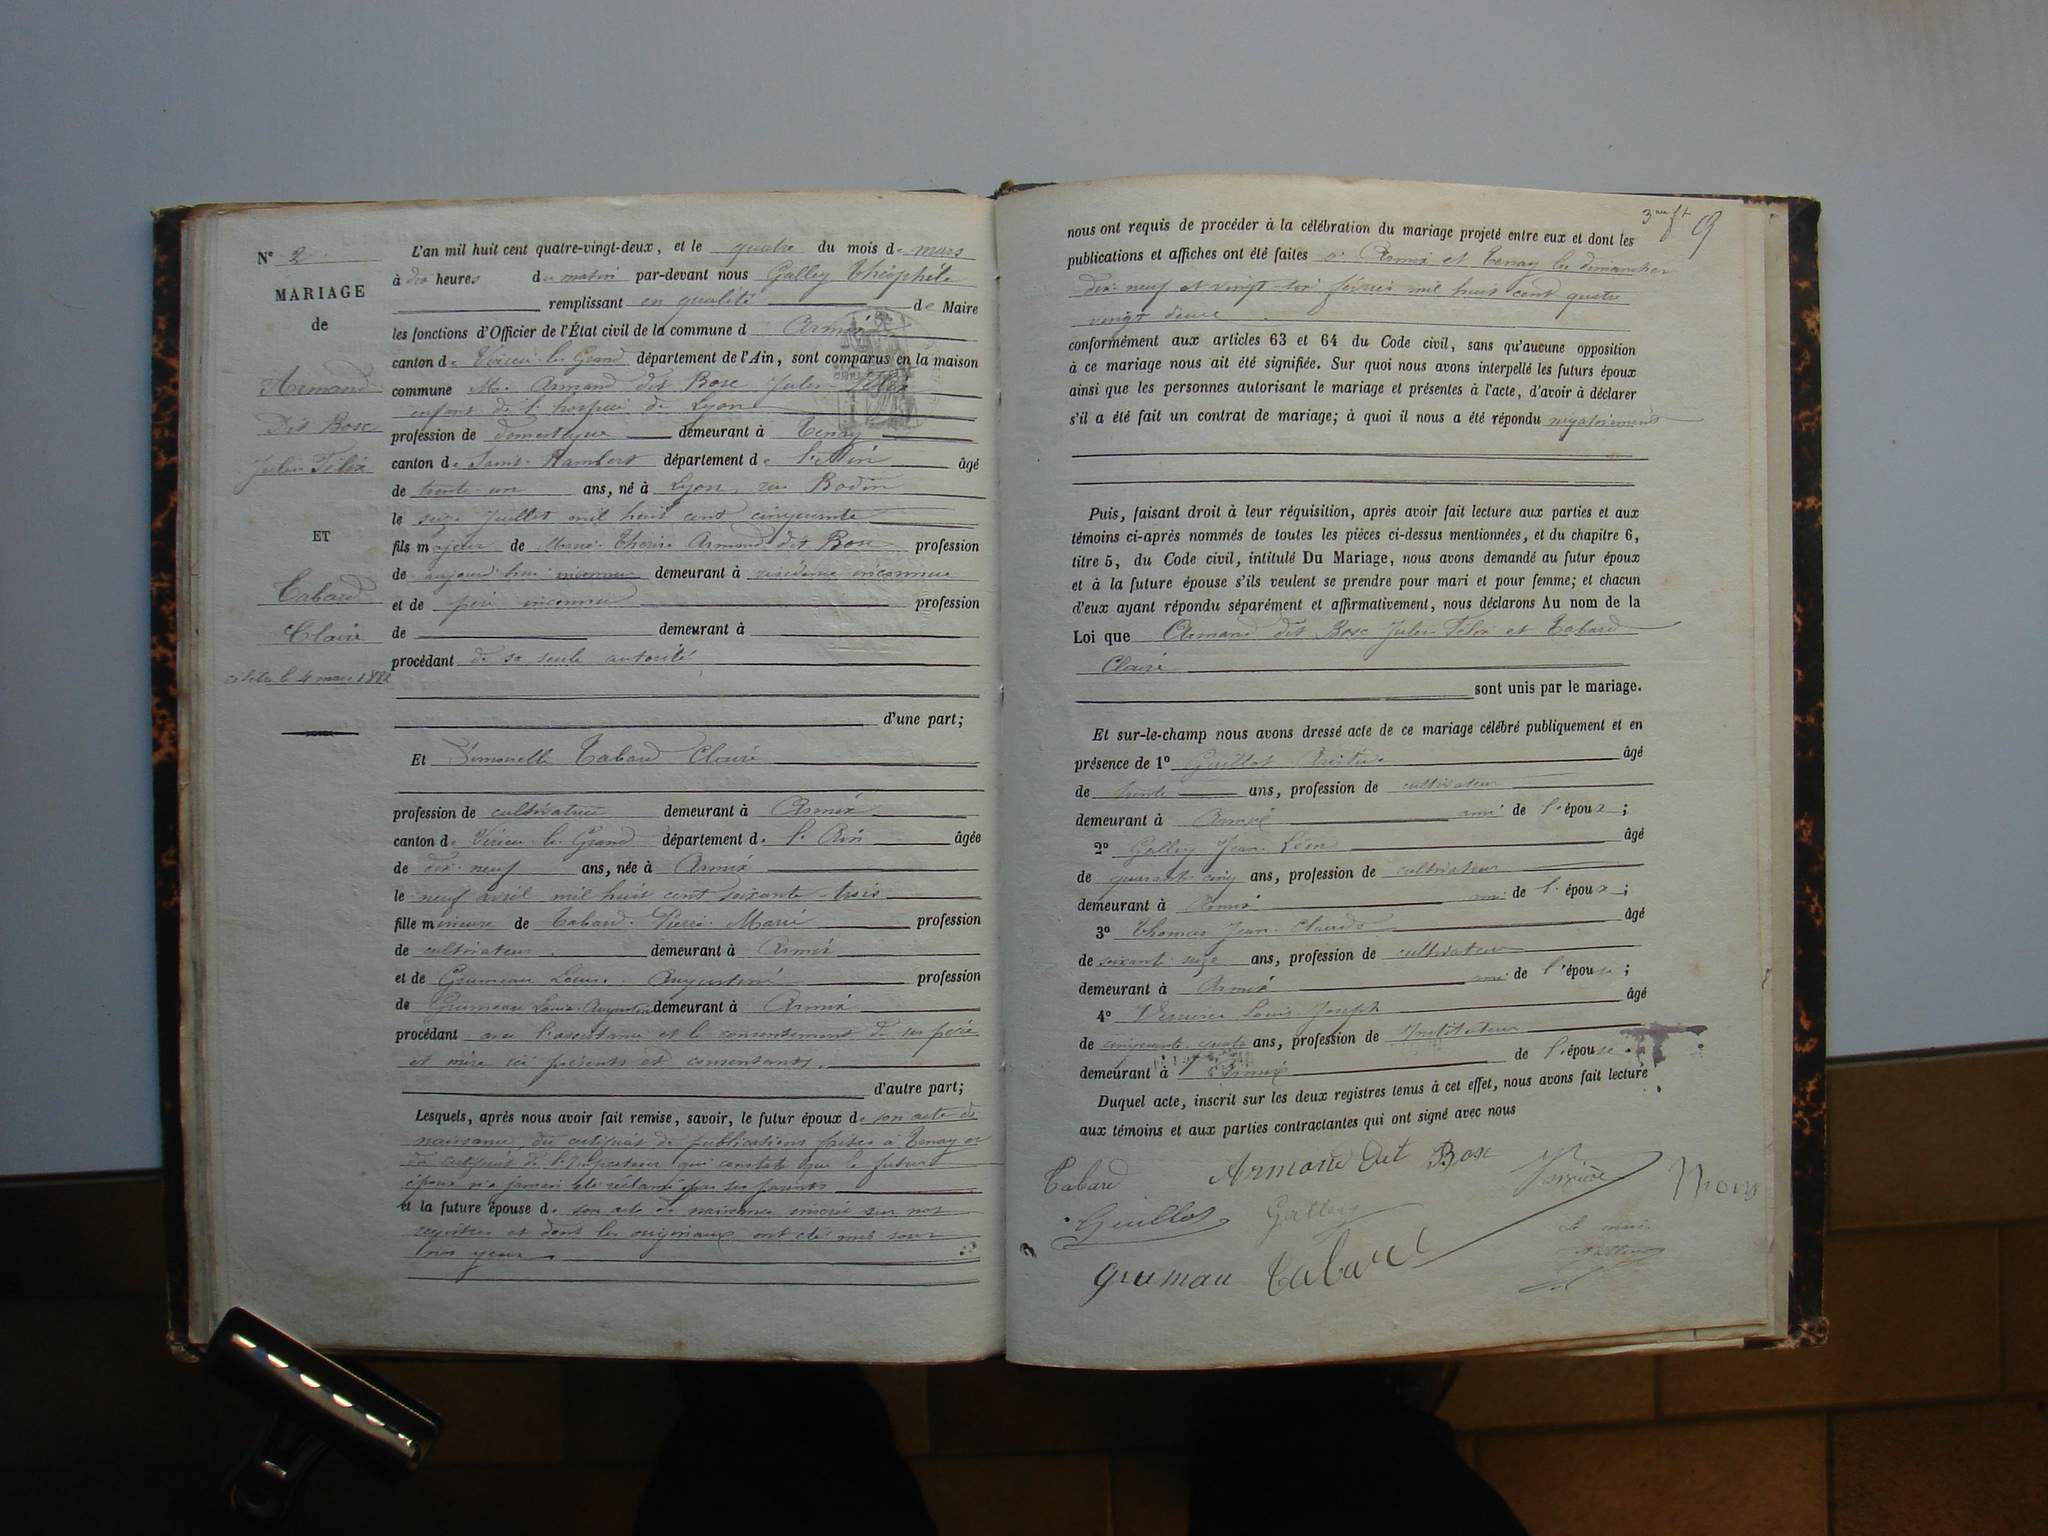 N° 2
MARIAGE
de
Armand
Dit Bosc
Jules Félix
ET
Tabard
Claire
célébré le 4 mars 1882
L'an mil huit cent quatre-vingt-deux, et le quatre du mois de mars
à dix heures du matin par-devant nous Galley Théophile
remplissant en qualité de Maire
les fonctions d'Officier de l'État civil de la commune d Armix
canton de Virieu-le-Grand département de l'Ain, sont comparus en la maison
commune Mr. Armand dit Bosc Jules-Félix
enfant de l'hospice de Lyon
profession de domestique demeurant à Tenay
canton de Saint-Rambert département de l'Ain âgé
de trente-un ans, né à Lyon, rue Bodin
le seize Juillet mil huit cent cinquante
fils majeur de Marie-Thérèse Armand dit Bosc profession
de aujourd'hui inconnue demeurant à résidence inconnue
et de père inconnu profession
de demeurant à
procédant de sa seule autorité
d'une part;
Et Demoiselle Tabard Claire
profession de cultivatrice demeurant à Armix
canton de Virieu-le-Grand département de l'Ain âgée
de dix-neuf ans, née à Armix
le neuf avril mil huit cent soixante-trois
fille mineure de Tabard Pierre-Marie profession
de cultivateur demeurant à Armix
et de Grumeau Louise Augustine profession
de Grumeau Louise Augustine demeurant à Armix
procédant avec l'assistance et le consentement de ses père
et mère ici présents et consentants.
d'autre part;
Lesquels, après nous avoir fait remise, savoir, le futur époux de son acte de
naissance, du certificat de publications faites à Tenay et
du certificat de l'Inspecteur qui constate que le futur
époux n'a jamais été réclamé par ses parents
et la future épouse de son acte de naissance inscrit sur nos
registres et dont les originaux ont été mis sous
nos yeux
3me ft 9
nous ont requis de procéder à la célébration du mariage projeté entre eux et dont les
publications et affiches ont été faites à Armix et Tenay les dimanches
dix-neuf et vingt-six février mil huit cent quatre
vingt deux
conformément aux articles 63 et 64 du Code civil, sans qu'aucune opposition
à ce mariage nous ait été signifiée. Sur quoi nous avons interpellé les futurs époux
ainsi que les personnes autorisant le mariage et présentes à l'acte, d'avoir à déclarer
s'il a été fait un contrat de mariage; à quoi il nous a été répondu négativement
Puis, faisant droit à leur réquisition, après avoir fait lecture aux parties et aux
témoins ci-après nommés de toutes les pièces ci-dessus mentionnées, et du chapitre 6,
titre 5, du Code civil, intitulé Du Mariage, nous avons demandé au futur époux
et à la future épouse s'ils veulent se prendre pour mari et pour femme; et chacun
d'eux ayant répondu séparément et affirmativement, nous déclarons Au nom de la
Loi que Armand dit Bosc Jules-Félix et Tabard
Claire
sont unis par le mariage.
Et sur-le-champ nous avons dressé acte de ce mariage célébré publiquement et en
présence de 1° Guillot âgé
de trente ans, profession de cultivateur
demeurant à Armix ami de l'époux;
2° Galley Jean-Léon âgé
de quarante cinq ans, profession de cultivateur
demeurant à Armix ami de l'époux;
3° Thomas Jean-Claude âgé
de soixante-seize ans, profession de cultivateur
demeurant à Armix ami de l'épouse;
4° Louis Joseph âgé
de cinquante-quatre ans, profession de Instituteur
demeurant à Armix de l'épouse.
Duquel acte, inscrit sur les deux registres tenus à cet effet, nous avons fait lecture
aux témoins et aux parties contractantes qui ont signé avec nous
Tabard Armand dit Bosc
Guillot Galley Le maire
Galley
Grumau Tabard